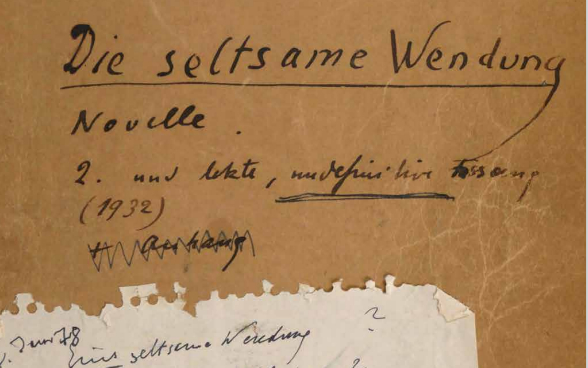 Die seltsame Wendung
Novelle.
2. und lezte, undefinitive Fassung
(1932)
+ Anhang
?
Juni 78
Eine seltsame Wendung